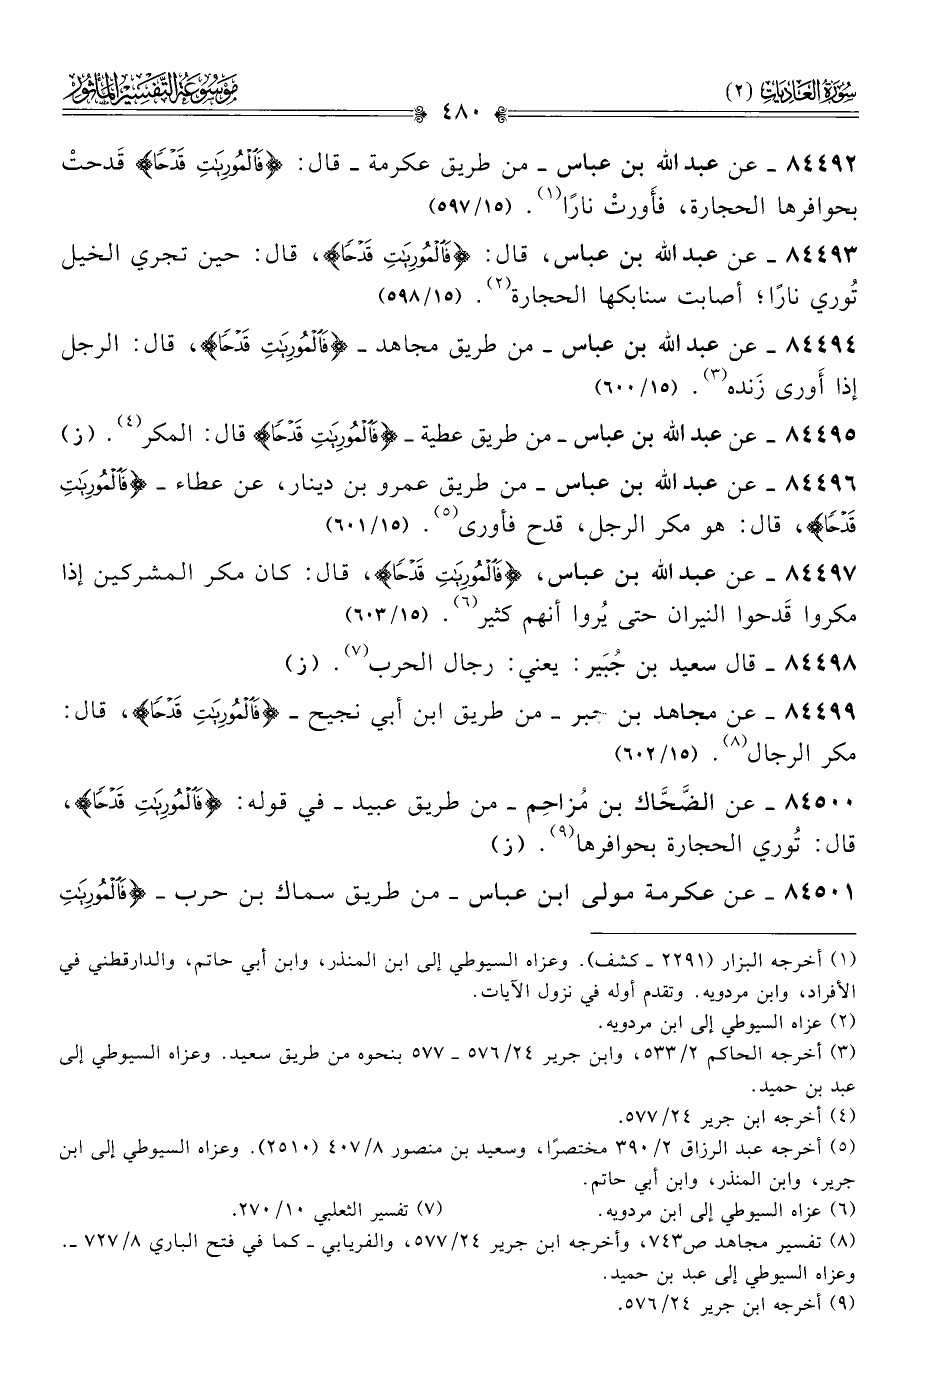 سورة العاديات (٢)
٤٨٠
موسوعة التفسير المأثور
٨٤٤٩٢ ـ عن عبد الله بن عباس ـ من طريق عكرمة ـ قال: ﴿فَٱلْمُورِيَٰتِ قَدْحًا﴾ قَدحتْ
بحوافرها الحجارة، فأَورتْ نارًا(١). (٥٩٧/١٥)
٨٤٤٩٣ ـ عن عبد الله بن عباس، قال: ﴿فَٱلْمُورِيَٰتِ قَدْحًا﴾، قال: حين تجري الخيل
تُوري نارًا؛ أصابت سنابكها الحجارة(٢). (٥٩٨/١٥)
٨٤٤٩٤ ـ عن عبد الله بن عباس ـ من طريق مجاهد ـ ﴿فَٱلْمُورِيَٰتِ قَدْحًا﴾، قال: الرجل
إذا أَورى زَنده(٣). (٦٠٠/١٥)
٨٤٤٩٥ ـ عن عبد الله بن عباس ـ من طريق عطية ـ ﴿فَٱلْمُورِيَٰتِ قَدْحًا﴾ قال: المكر(٤). (ز)
٨٤٤٩٦ ـ عن عبد الله بن عباس ـ من طريق عمرو بن دينار، عن عطاء ـ ﴿فَٱلْمُورِيَٰتِ
قَدْحًا﴾، قال: هو مكر الرجل، قدح فأورى(٥). (٦٠١/١٥)
٨٤٤٩٧ ـ عن عبد الله بن عباس، ﴿فَٱلْمُورِيَٰتِ قَدْحًا﴾، قال: كان مكر المشركين إذا
مكروا قَدحوا النيران حتى يُروا أنهم كثير(٦). (٦٠٣/١٥)
٨٤٤٩٨ ـ قال سعيد بن جُبَير: يعني: رجال الحرب(٧). (ز)
٨٤٤٩٩ ـ عن مجاهد بن جبر ـ من طريق ابن أبي نجيح ـ ﴿فَٱلْمُورِيَٰتِ قَدْحًا﴾، قال:
مكر الرجال(٨). (٦٠٢/١٥)
٨٤٥٠٠ ـ عن الضَّحَّاك بن مُزاحِم ـ من طريق عبيد ـ في قوله: ﴿فَٱلْمُورِيَٰتِ قَدْحًا﴾،
قال: تُوري الحجارة بحوافرها(٩). (ز)
٨٤٥٠١ ـ عن عكرمة مولى ابن عباس ـ من طريق سماك بن حرب ـ ﴿فَٱلْمُورِيَٰتِ
(١) أخرجه البزار (٢٢٩١ ـ كشف). وعزاه السيوطي إلى ابن المنذر، وابن أبي حاتم، والدارقطني في
الأفراد، وابن مردويه. وتقدم أوله في نزول الآيات.
(٢) عزاه السيوطي إلى ابن مردويه.
(٣) أخرجه الحاكم ٥٣٣/٢، وابن جرير ٥٧٦/٢٤ ـ ٥٧٧ بنحوه من طريق سعيد. وعزاه السيوطي إلى
عبد بن حميد.
(٤) أخرجه ابن جرير ٥٧٧/٢٤.
(٥) أخرجه عبد الرزاق ٣٩٠/٢ مختصرًا، وسعيد بن منصور ٤٠٧/٨ (٢٥١٠). وعزاه السيوطي إلى ابن
جرير، وابن المنذر، وابن أبي حاتم.
(٦) عزاه السيوطي إلى ابن مردويه. (٧) تفسير الثعلبي ٢٧٠/١٠.
(٨) تفسير مجاهد ص٧٤٣، وأخرجه ابن جرير ٥٧٧/٢٤، والفريابي ـ كما في فتح الباري ٧٢٧/٨ ـ.
وعزاه السيوطي إلى عبد بن حميد.
(٩) أخرجه ابن جرير ٥٧٦/٢٤.